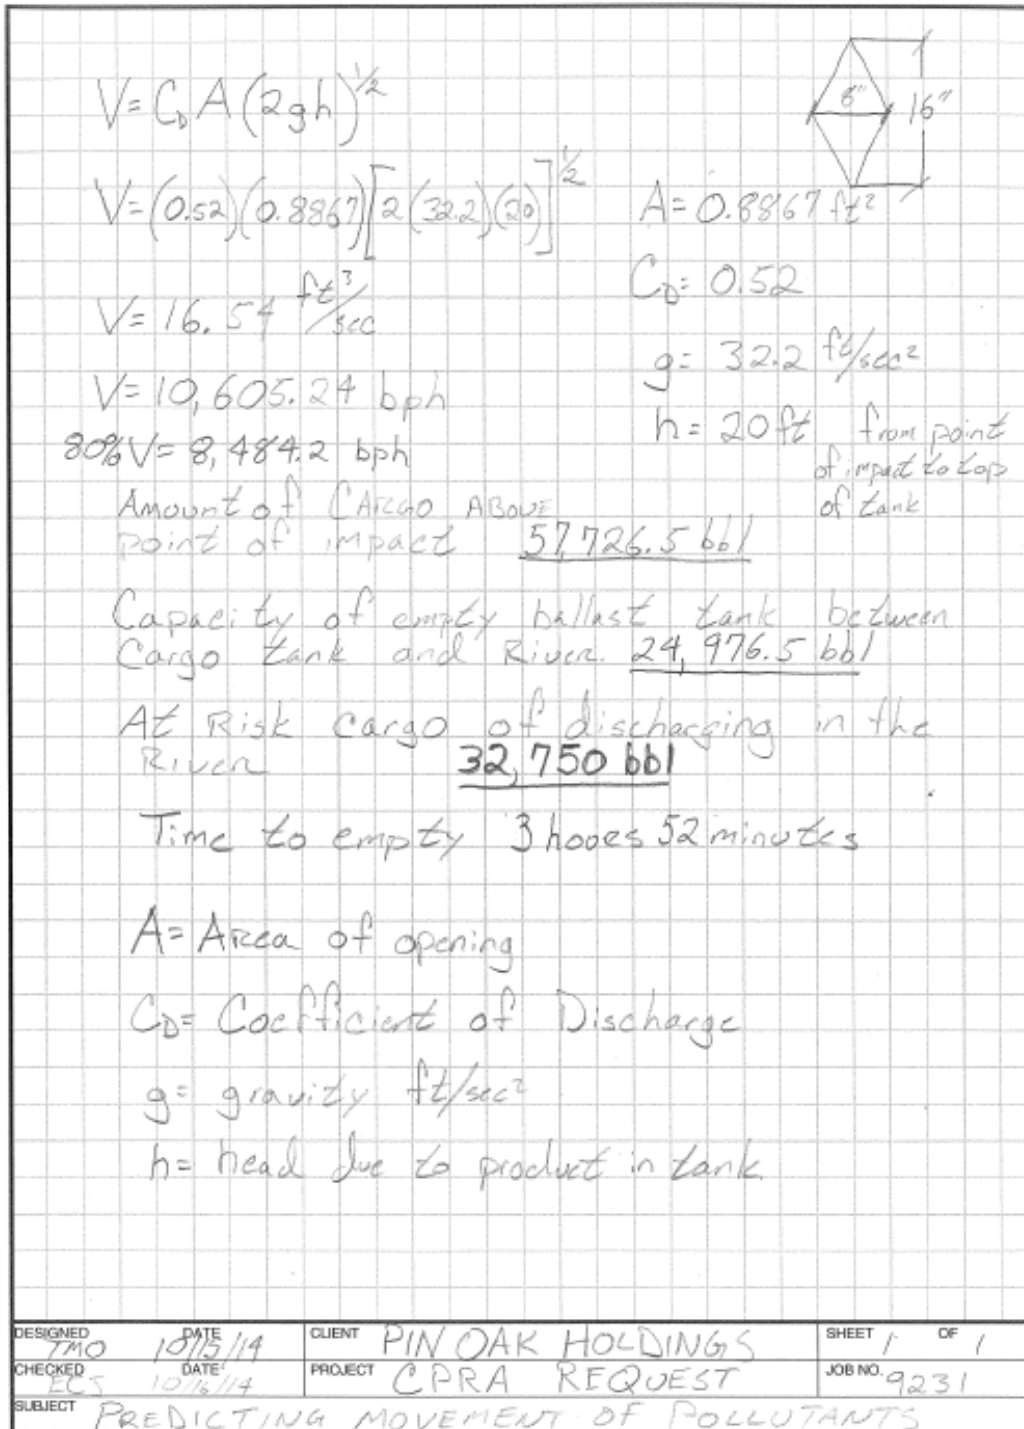 8"
16"
V= C_D A (2gh)^1/2
V= (0.52)(0.8867)[2(32.2)(20)]^1/2 A= 0.8867 ft²
V= 16.54 ft³/sec C_D= 0.52
g= 32.2 ft/sec²
V= 10,605.24 bph
h= 20 ft from point
80% V= 8,484.2 bph
of impact to top
of tank
Amount of CARGO ABOVE
point of impact 57,726.5 bbl
Capacity of empty ballast tank between
Cargo tank and River. 24,976.5 bbl
At Risk cargo of discharging in the
River 32,750 bbl
Time to empty 3 hooes 52 minutes
A= Area of opening
C_D= Coefficient of Discharge
g= gravity ft/sec²
h= head due to product in tank.
DESIGNED TMO DATE 10/15/14 CLIENT PIN OAK HOLDINGS SHEET 1 OF 1
CHECKED ECS DATE 10/16/14 PROJECT CPRA REQUEST JOB NO. 9231
SUBJECT PREDICTING MOVEMENT OF POLLUTANTS